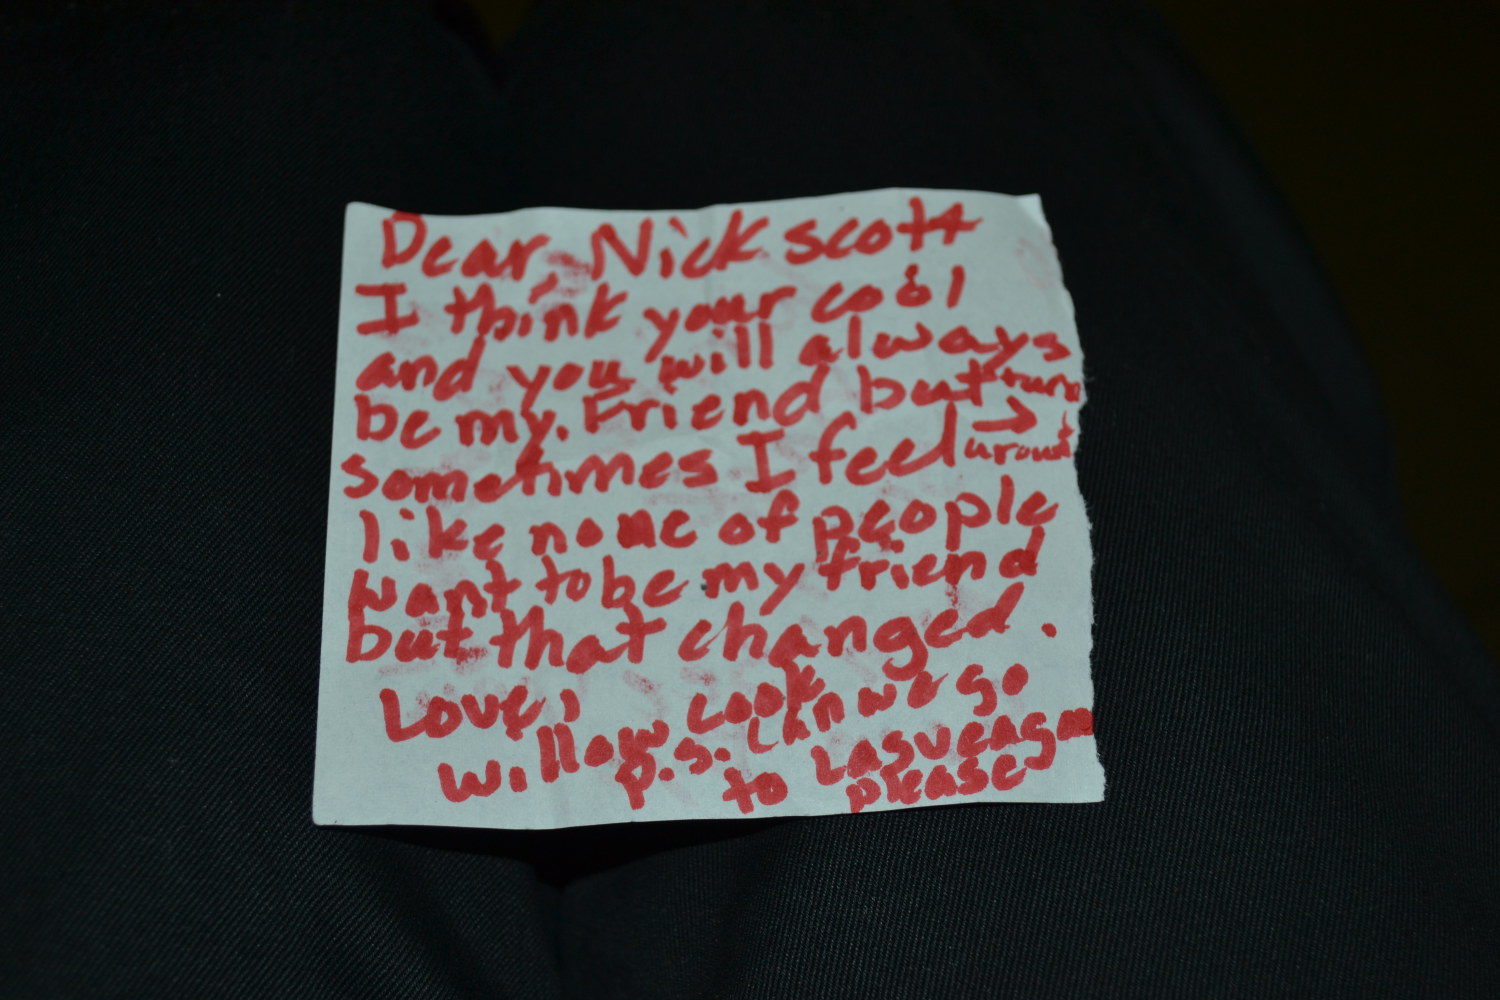 Dear, Nick scott
I think your cool
and you will always
be my. Friend but turn
sometimes I feel → around
like none of people
want to be my friend
but that changed.
Love,
willow cook
p.s. can we go
to Lasveagas
please